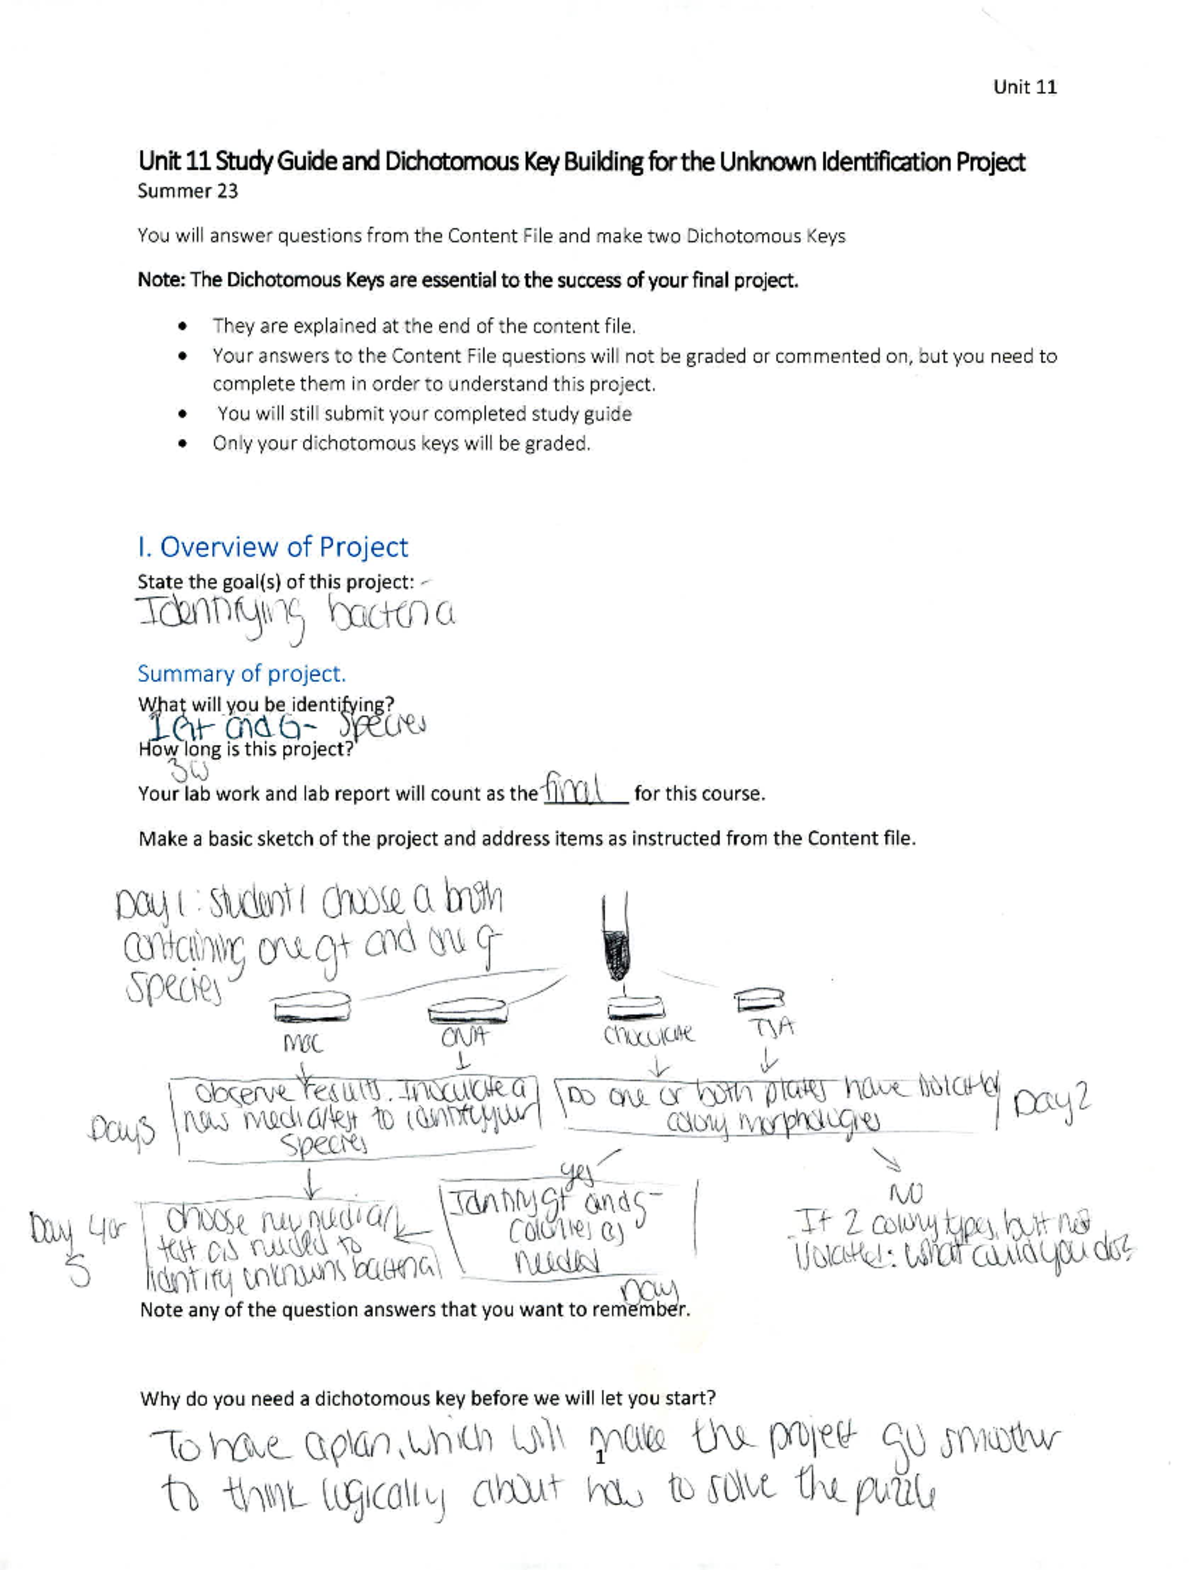 Unit 11
Unit 11 Study Guide and Dichotomous Key Building for the Unknown Identification Project
Summer 23
You will answer questions from the Content File and make two Dichotomous Keys
Note: The Dichotomous Keys are essential to the success of your final project.
• They are explained at the end of the content file.
• Your answers to the Content File questions will not be graded or commented on, but you need to
complete them in order to understand this project.
• You will still submit your completed study guide
• Only your dichotomous keys will be graded.
I. Overview of Project
State the goal(s) of this project: -
Identifying bacteria
Summary of project.
What will you be identifying?
1 G+ and G- species
How long is this project?
3W
Your lab work and lab report will count as the final for this course.
Make a basic sketch of the project and address items as instructed from the Content file.
Day 1: student 1 choose a broth
containing one g+ and one g-
species
MAC
CNA
Chocolate
TSA
Day 3
Observe results. Inoculate a
new media/test to identify your
species
Do one or both plates have isolated
colony morphologies
Day 2
yes
NO
Day 4 or
5
choose new media/
test as needed to
identify unknowns bacterial
Identify g+ and g-
colonies as
needed
Day
If 2 colony types, but not
isolated: what could you do?
Note any of the question answers that you want to remember.
Why do you need a dichotomous key before we will let you start?
To have a plan, which will make the project go smoother
1
to think logically about how to solve the puzzle